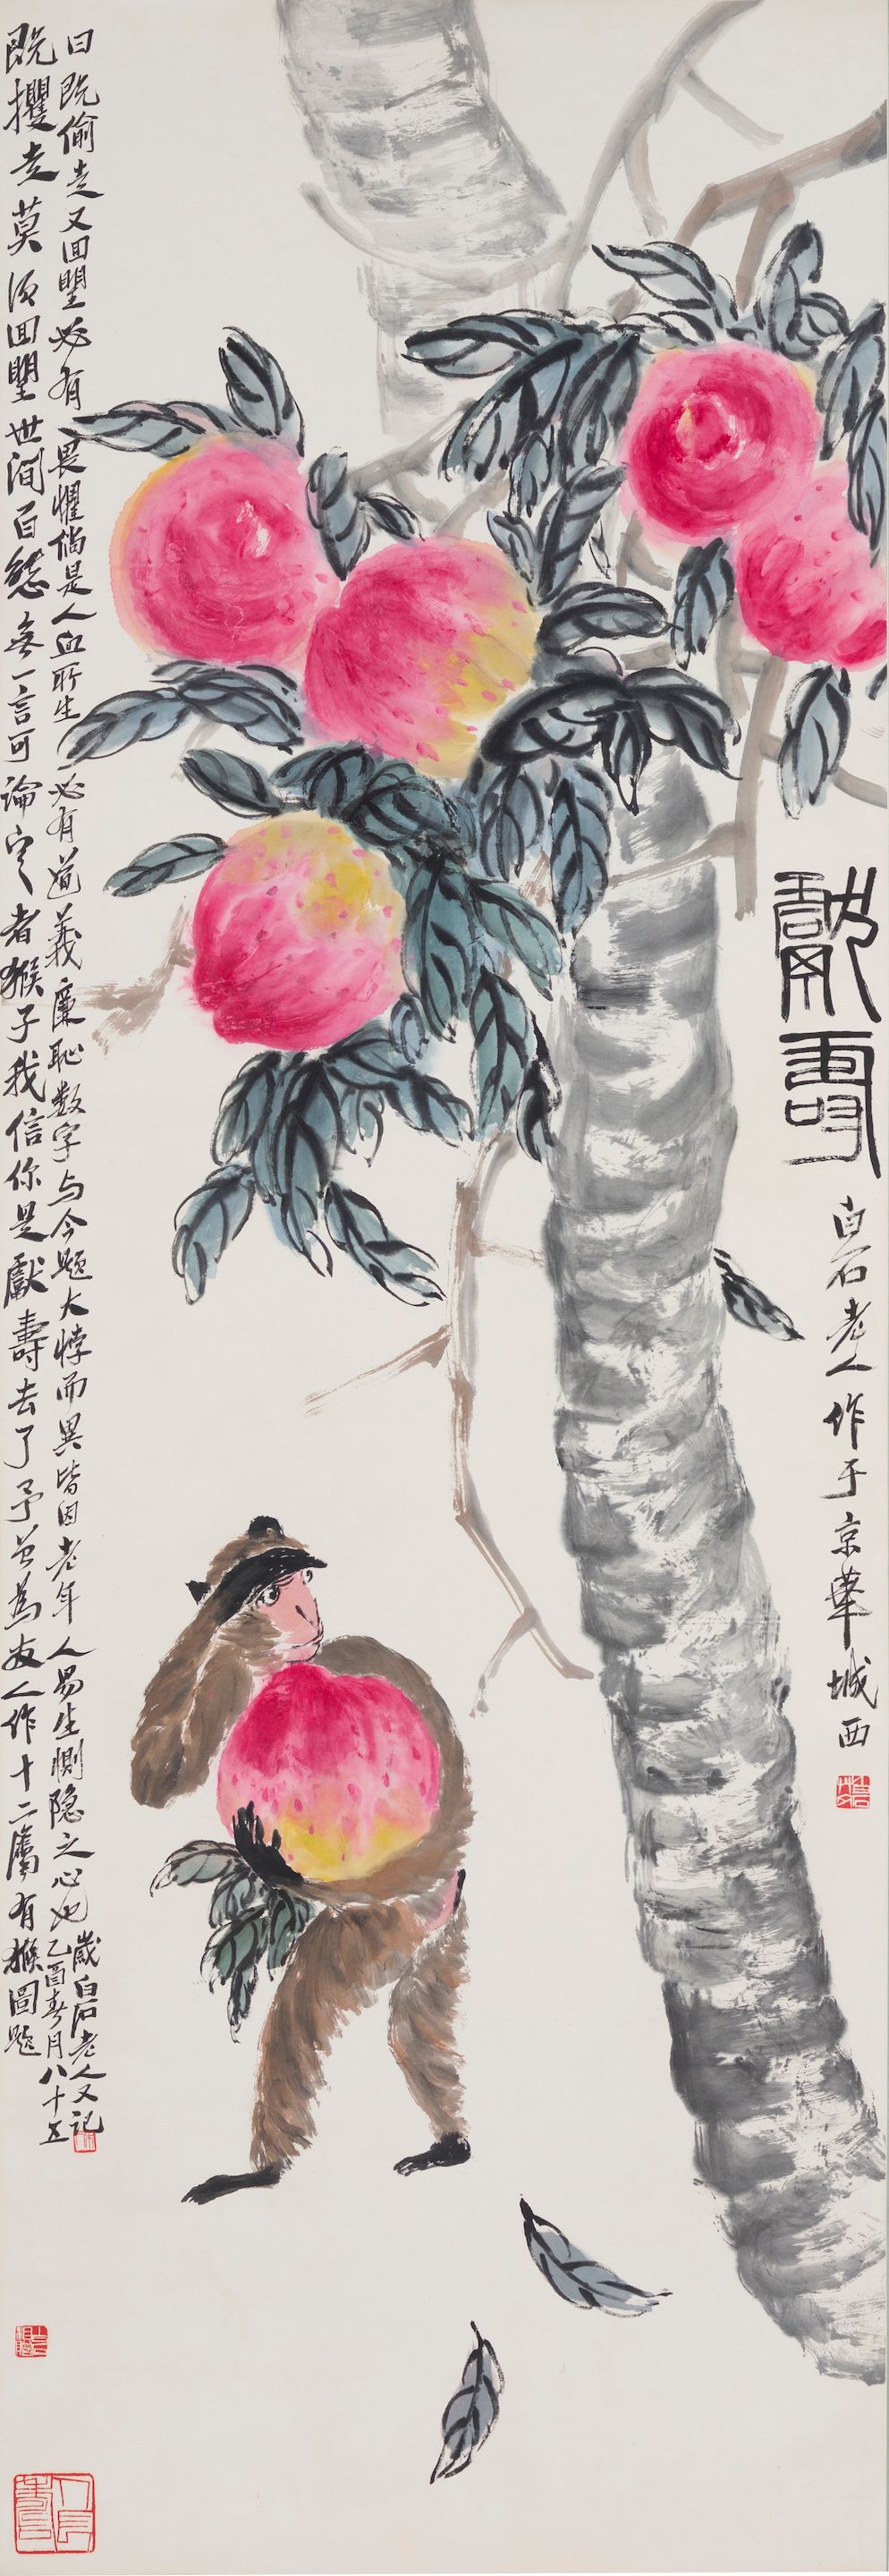 獻壽
白石老人作于京華城西
既攫走莫須回望世間百態無一言可論定者猴子我信你是獻壽去了予曾為友人作十二屬有猴圖題
曰既偷走又回望必有畏懼倘是人血所生必有道義廉恥数字与今題大悖而異皆因老年人易生惻隐之心也
乙酉春月八十五
歲白石老人又記